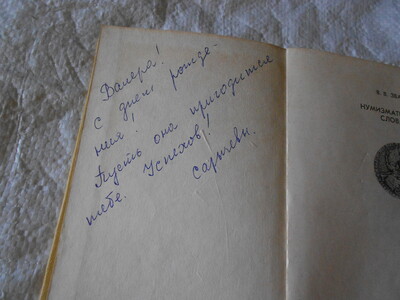 Валера!
С днем рожде-
ния!
Пусть она пригодится
тебе. Успехов!
В. В. ЗВА
НУМИЗМАТ
СЛОВ